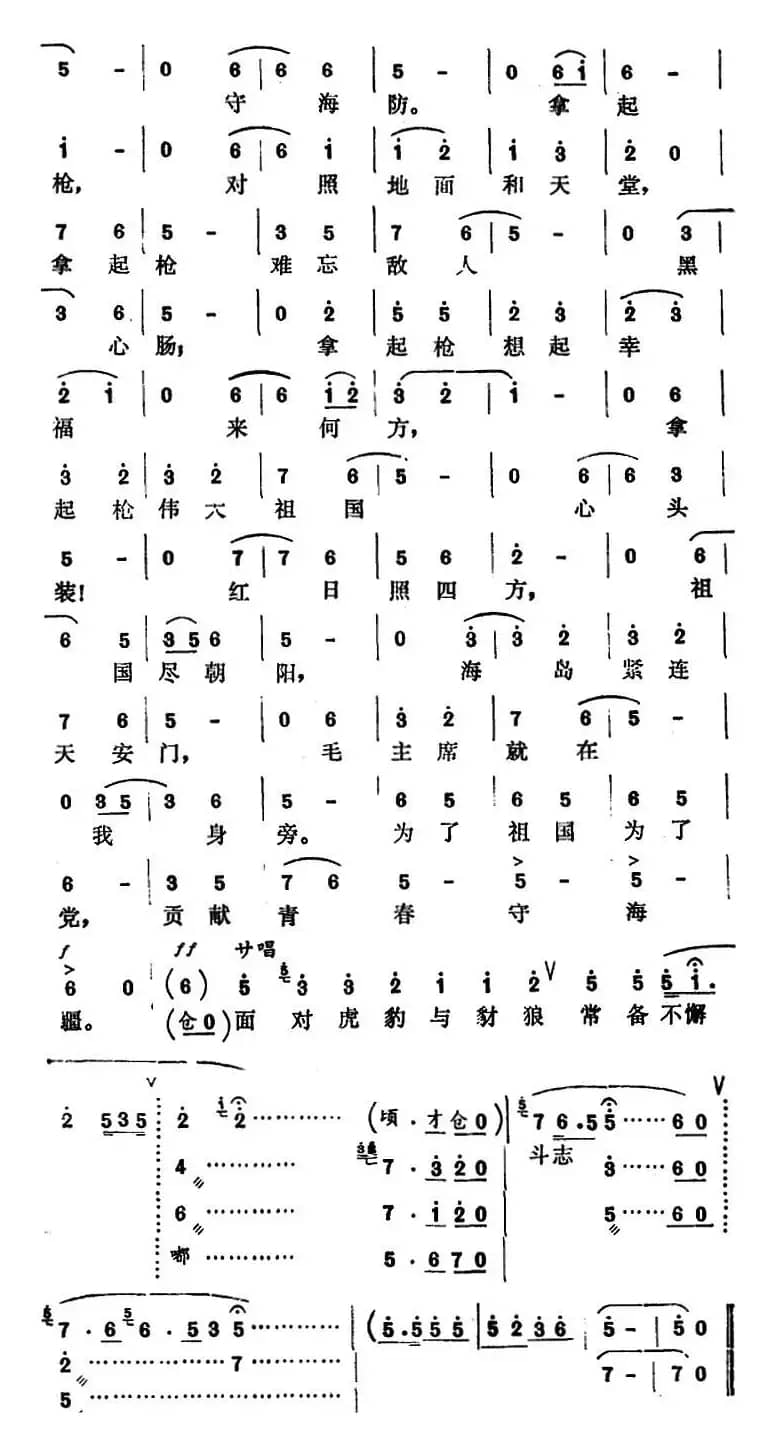 5 - | 0 6 | 6 6 | 5 - | 0 6i | 6 -
守 海 防。 拿 起
i - | 0 6 | 6 i | i 2 | i 3 | 2 0
枪， 对 照 地 面 和 天 堂，
7 6 | 5 - | 3 5 | 7 6 | 5 - | 0 3
拿 起 枪 难 忘 敌 人 黑
3 6 | 5 - | 0 2 | 5 5 | 2 3 | 2 3
心 肠； 拿 起 枪 想 起 幸
2 i | 0 6 | 6 i2 | 3 2 | i - | 0 6
福 来 何 方， 拿
3 2 | 3 2 | 7 6 | 5 - | 0 6 | 6 3
起 枪 伟 大 祖 国 心 头
5 - | 0 7 | 7 6 | 5 6 | 2 - | 0 6
装！ 红 日 照 四 方， 祖
6 5 | 35 6 | 5 - | 0 3 | 3 2 | 3 2
国 尽 朝 阳， 海 岛 紧 连
7 6 | 5 - | 0 6 | 3 2 | 7 6 | 5 -
天 安 门， 毛 主 席 就 在
0 35 | 3 6 | 5 - | 6 5 | 6 5 | 6 5
我 身 旁。 为 了 祖 国 为 了
6 - | 3 5 | 7 6 | 5 - | 5 - | 5 -
党， 贡 献 青 春 守 海
f ff サ唱
6 0 | (6) 5 3 3 2 i i 2 V 5 5 5 i.
疆。 (仓0) 面 对 虎 豹 与 豺 狼 常 备 不 懈
2 535 2 2 ………… (顷 . 才 仓 0) | 7 6.5 5 …… 6 0 V
4 ………… 7 . 3 2 0 斗志 3 …… 6 0
6 ………… 7 . i 2 0 5 …… 6 0
嘟 ………… 5 . 6 7 0
7 . 6 6 . 5 3 5 ………… | (5.5 5 5 | 5 2 3 6 | 5 - | 5 0
2 ………… 7 ………… 7 - | 7 0
5 …………………………